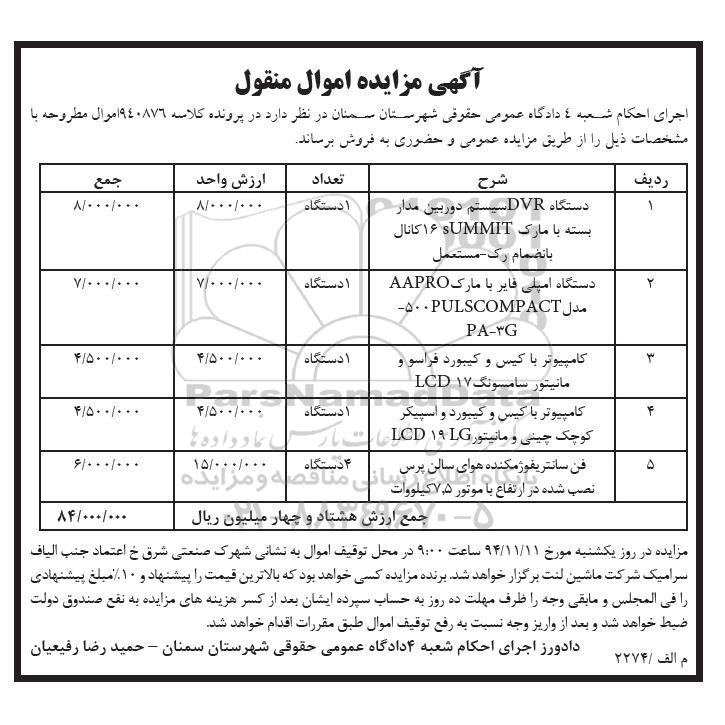 آگهی مزایده اموال منقول
اجرای احکام شعبه ۴ دادگاه عمومی حقوقی شهرستان سمنان در نظر دارد در پرونده کلاسه ۹۴۰۸۷۶اموال مطروحه با
مشخصات ذیل را از طریق مزایده عمومی و حضوری به فروش برساند.
ردیف شرح تعداد ارزش واحد جمع
۱ دستگاه DVRسیستم دوربین مدار ۱دستگاه ۸/۰۰۰/۰۰۰ ۸/۰۰۰/۰۰۰
بسته با مارک sUMMIT ۱۶کانال
بانضمام رک-مستعمل
۲ دستگاه امپلی فایر با مارکAAPRO ۱دستگاه ۷/۰۰۰/۰۰۰ ۷/۰۰۰/۰۰۰
مدل۵۰۰PULSCOMPACT-
PA-۳G
۳ کامپیوتر با کیس و کیبورد فراسو و ۱دستگاه ۴/۵۰۰/۰۰۰ ۴/۵۰۰/۰۰۰
مانیتور سامسونگ۱۷ LCD
۴ کامپیوتر با کیس و کیبورد و اسپیکر ۱دستگاه ۴/۵۰۰/۰۰۰ ۴/۵۰۰/۰۰۰
کوچک چینی و مانیتورLCD ۱۹ LG
۵ فن سانتریفوژمکنده هوای سالن پرس ۴دستگاه ۱۵/۰۰۰/۰۰۰ ۶/۰۰۰/۰۰۰
نصب شده در ارتفاع با موتور ۷,۵کیلووات
جمع ارزش هشتاد و چهار میلیون ریال ۸۴/۰۰۰/۰۰۰
مزایده در روز یکشنبه مورخ ۹۴/۱۱/۱۱ ساعت ۹:۰۰ در محل توقیف اموال به نشانی شهرک صنعتی شرق خ اعتماد جنب الیاف
سرامیک شرکت ماشین لنت برگزار خواهد شد. برنده مزایده کسی خواهد بود که بالاترین قیمت را پیشنهاد و ۱۰٪مبلغ پیشنهادی
را فی المجلس و مابقی وجه را ظرف مهلت ده روز به حساب سپرده ایشان بعد از کسر هزینه های مزایده به نفع صندوق دولت
ضبط خواهد شد و بعد از واریز وجه نسبت به رفع توقیف اموال طبق مقررات اقدام خواهد شد.
دادورز اجرای احکام شعبه ۴دادگاه عمومی حقوقی شهرستان سمنان – حمید رضا رفیعیان
م الف /۲۲۷۴
ParsNamadData
پایگاه اطلاع رسانی مناقصه و مزایده
۰۲۱-۸۸۳۴۹۶۷۰-۵